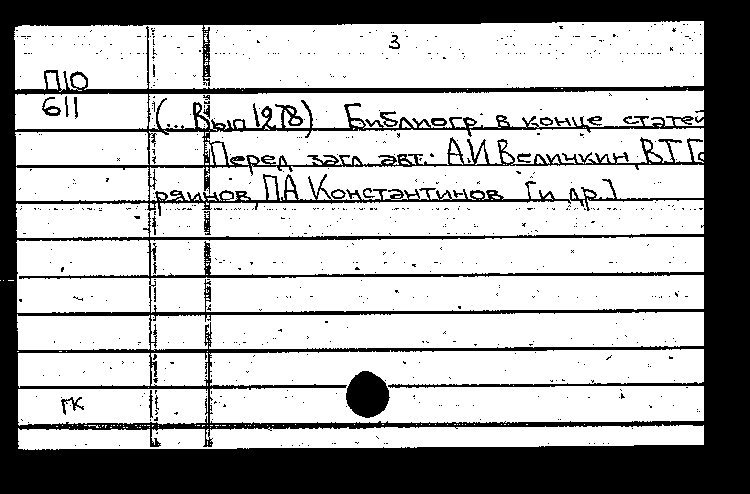 3
П10
611
(... Вып 1278) Библиогр. в конце статей
Перед загл. авт.: А.И Величкин, В.Т. Го
ряинов, П.А. Константинов [и др.]
ГК